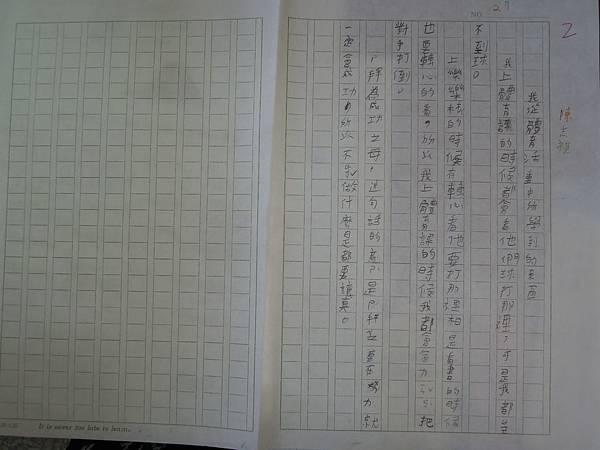 NO. 27
2
我從體育活動中所學到的東西
我上體育課的時候都會看他們球打那裡，可是我都並
不到球。
上樂樂棒的時候有轉心看他要打那裡相是真番的時候
也要轉心的看，所以我上體育課的時候我都會會力把
對手打倒。
為成功之母，這句話的意是要在努力就
一定會成功，所以不定做什麼是都要讓真。
It is never too late to learn.